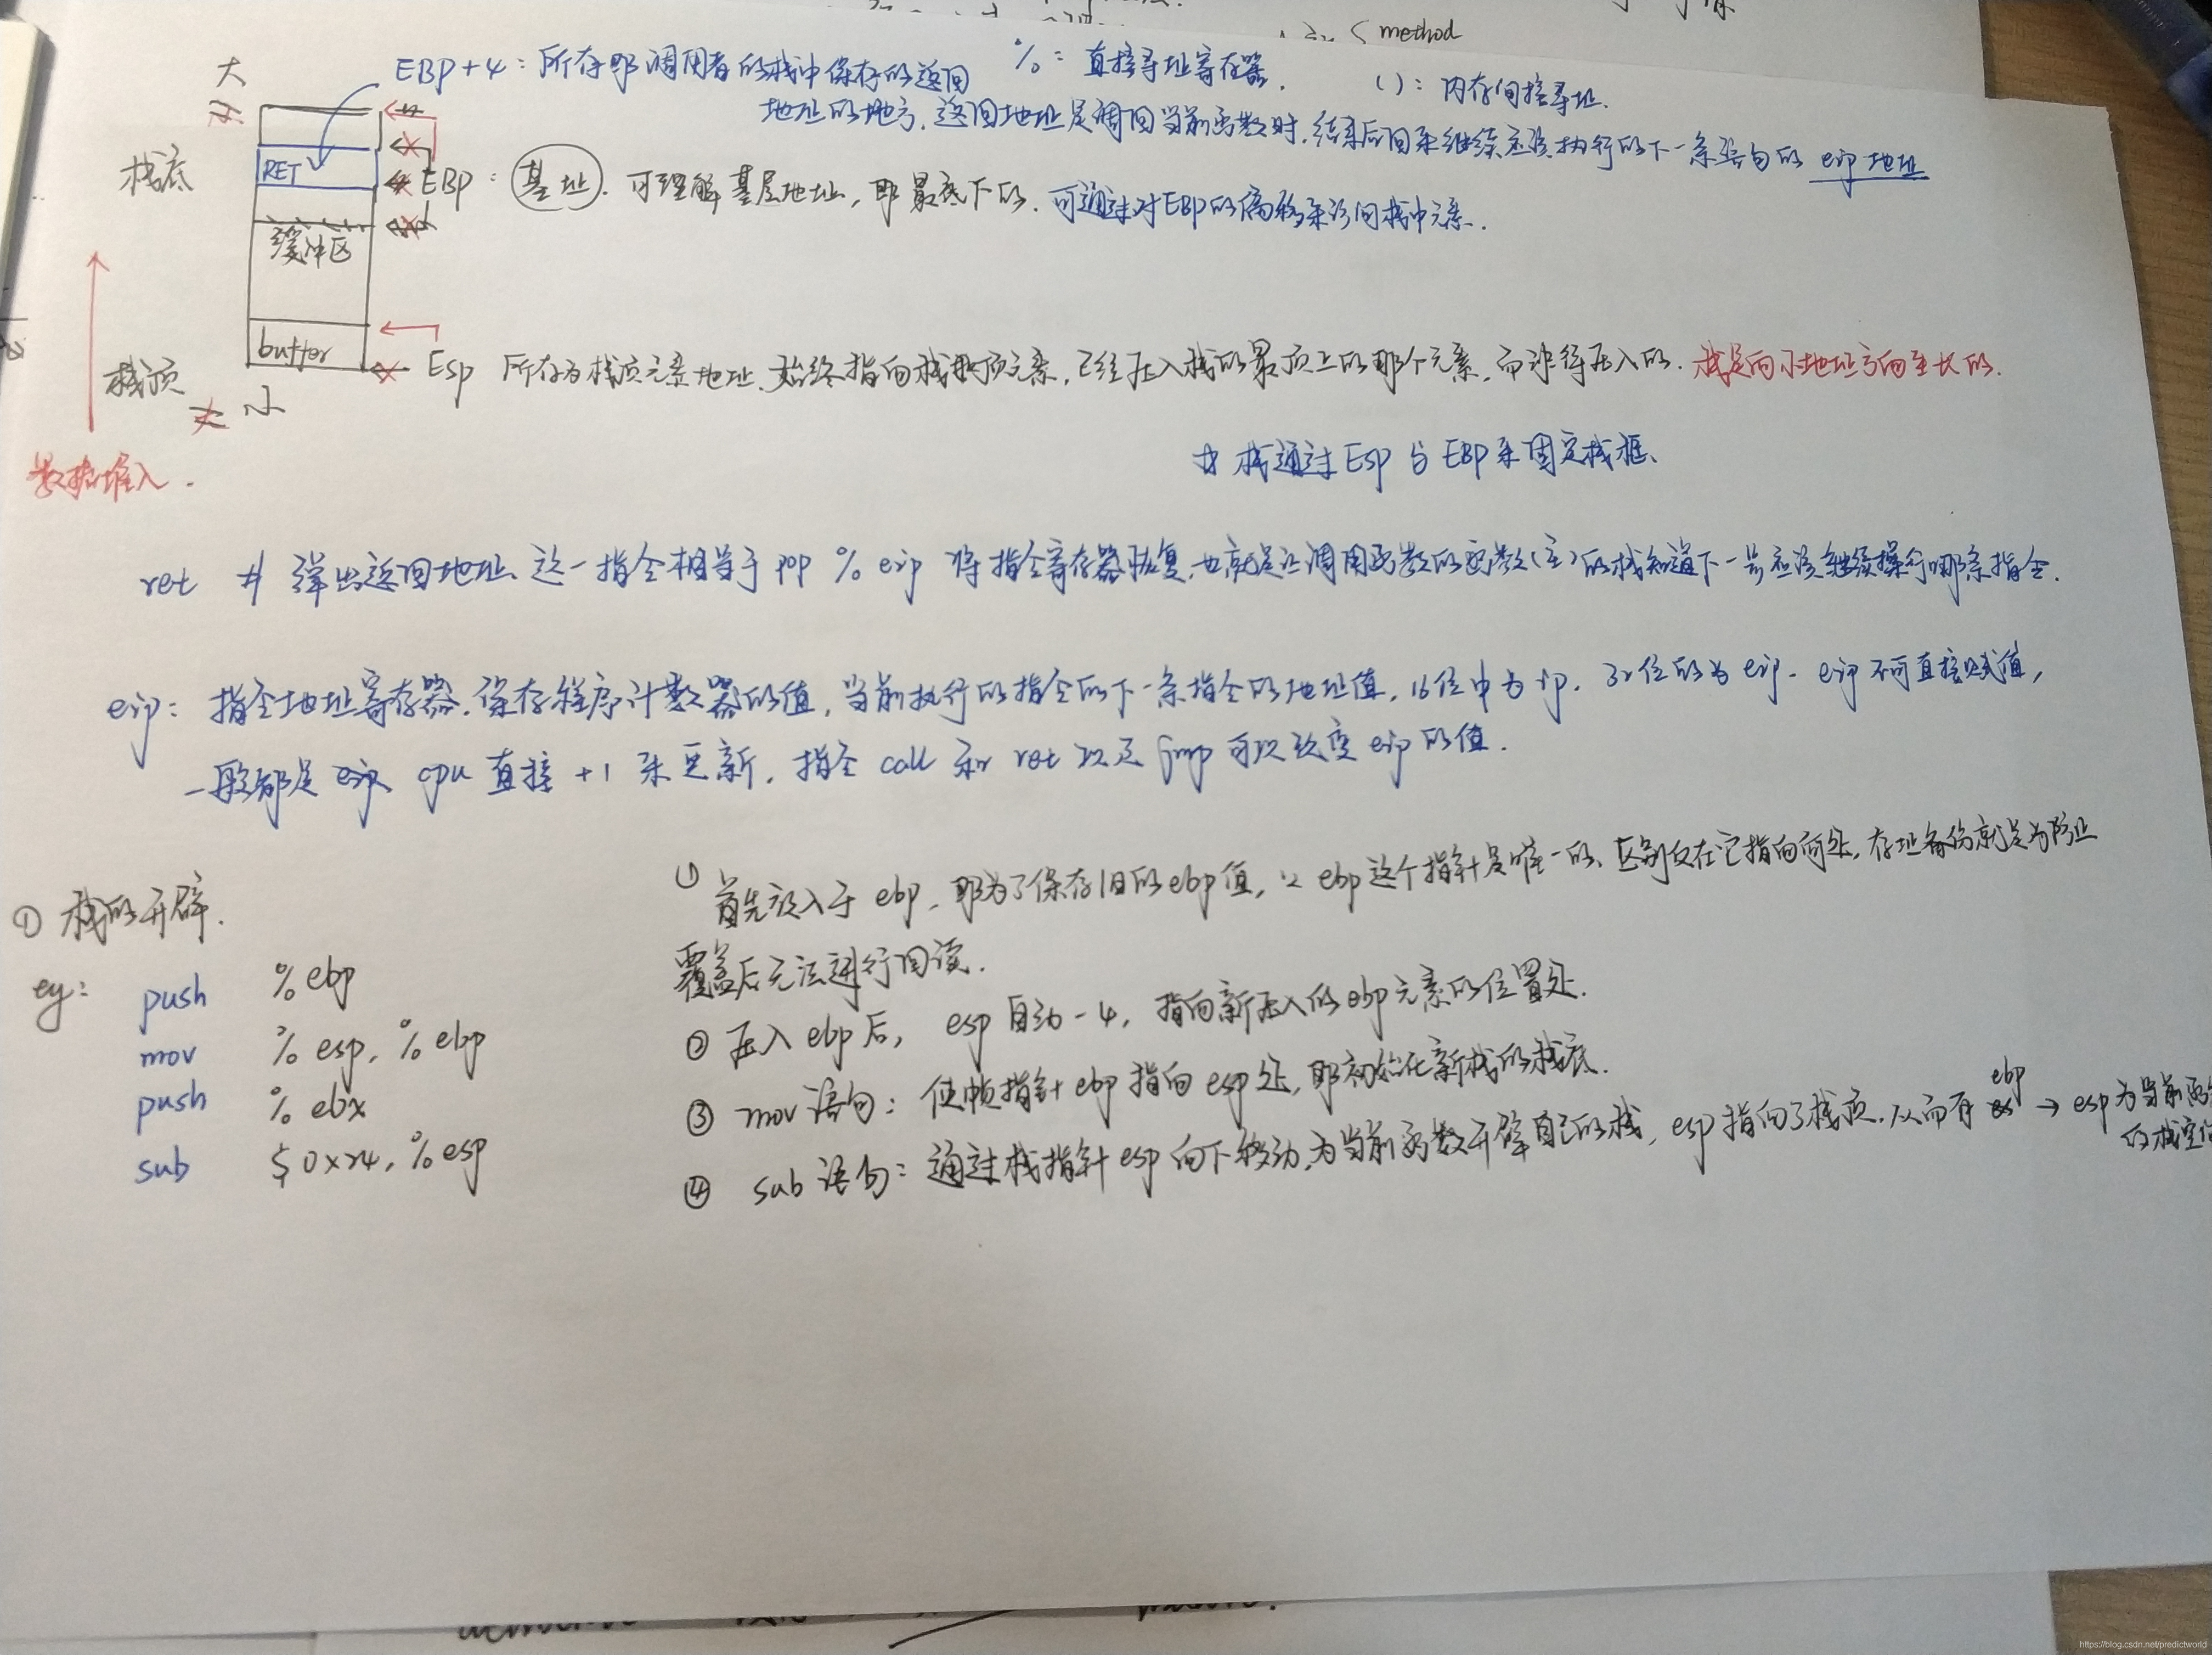 method
大
EBP+4：所存即调用者的栈中保存的返回
%：直接寻址寄存器.
()：内存间接寻址.
地址的地方.返回地址是调回当前函数时,结束后回来继续应该执行的下一条语句的 eip 地址
RET
栈底
EBP：基址.可理解基层地址，即最底下的.可通过对EBP的偏移来访问栈中元素.
缓冲区
buffer
Esp 所存为栈顶元素地址.始终指向栈顶元素,已经压入栈的最顶上的那个元素,而非待压入的.栈是向小地址方向生长的.
栈顶
小
数据堆入.
# 栈通过 Esp 与 EBP 来固定栈框、
ret # 弹出返回地址、这一指令相当于 pop % eip 将指令寄存器恢复,也就是让调用函数的函数(主)的栈知道下一步应该继续操行哪条指令.
eip: 指令地址寄存器.保存程序计数器的值,当前执行的指令的下一条指令的地址值,16位中为ip.32位的为eip.eip不可直接赋值,
一般都是 cpu 直接 +1 来更新,指令 call 和 ret 以及 jmp 可以改变 eip 的值.
① 栈的开辟.
eg:
push %ebp
mov %esp, %ebp
push %ebx
sub $0x24, %esp
① 首先放入于 ebp,即为了保存旧的ebp值,∵ ebp这个指针是唯一的、区别仅在它指向何处,存址备份就是为防止
覆盖后无法进行回读.
② 压入 ebp 后, esp 自动-4, 指向新压入的ebp元素的位置处.
③ mov 语句: 使帧指针 ebp 指向 esp 处,即初始化新栈的栈底.
④ sub 语句: 通过栈指针 esp 向下移动,为当前函数开辟自己的栈, esp 指向了栈顶.从而有 ebp → esp 为当前函
的栈空
https://blog.csdn.net/predictworld